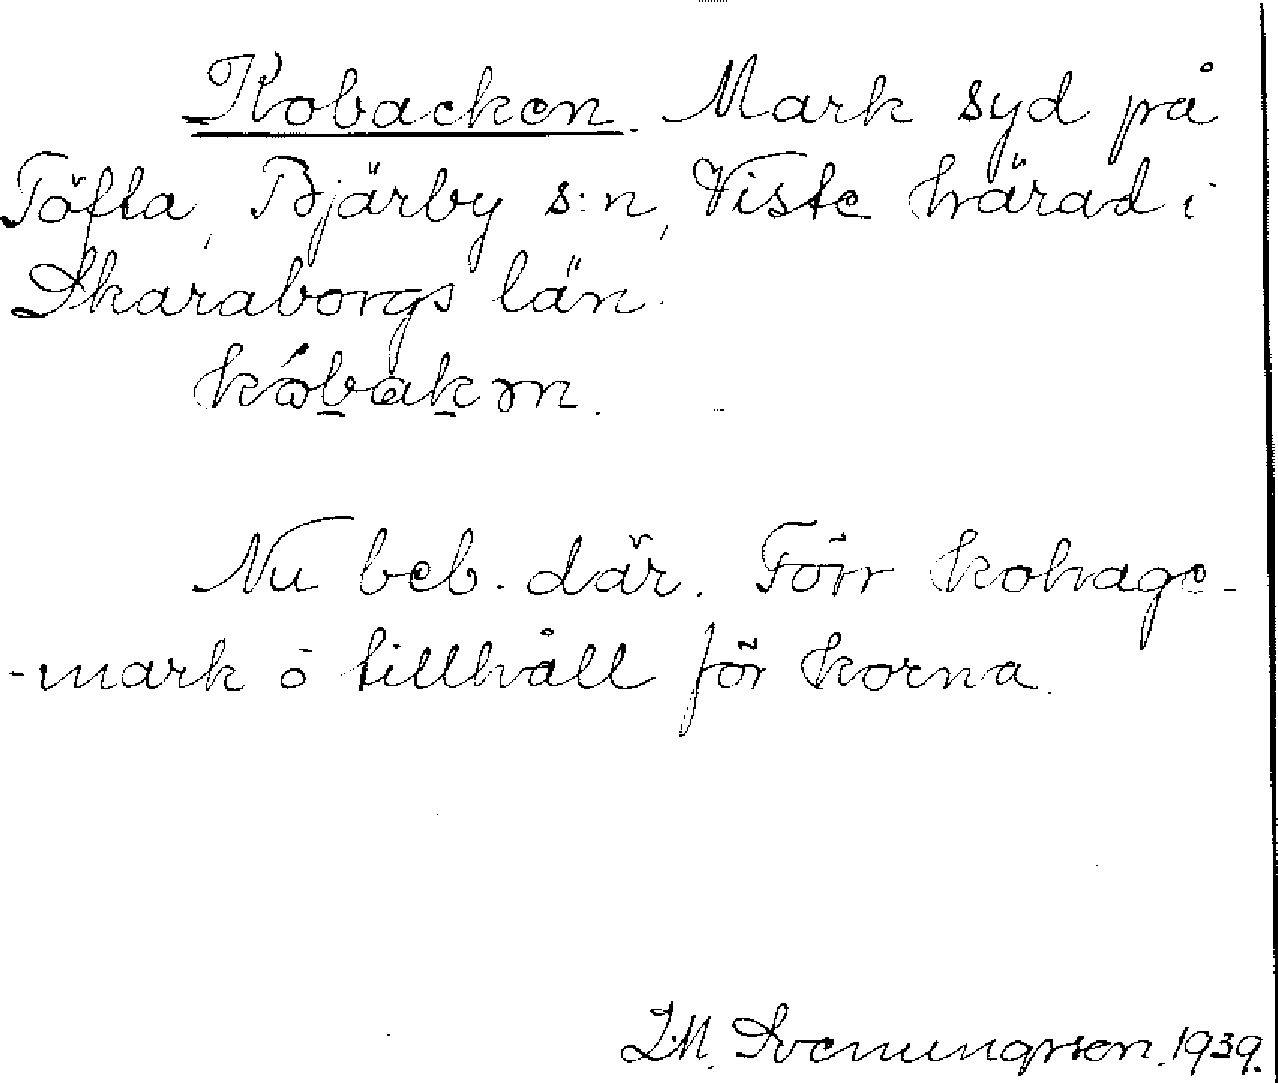 Kobacken. Mark syd på
Töfta, Bjärby s:n, Viste härad i
Skaraborgs län.
kóbakən.
Nu beb. där. Förr kohage-
-mark o tillhåll för korna.
I.M. Svenungsson. 1939.